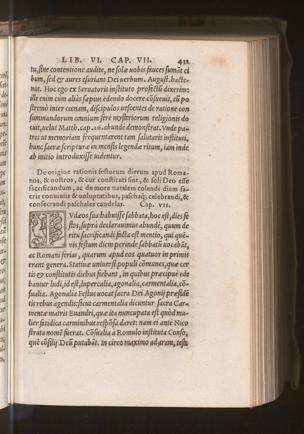 LIB. VI. CAP. VII. 431
tu, sine contentione audite, ne solæ vobis fauces sumāt ci
bum, sed & aures esuriant Dei uerbum. August. hacte-
nus. Hoc ego ex Seruatoris instituto profectū dixerim:
ille enim cum aliàs sæpius edendo docere cōsueuit, tū po
stremò inter cœnam, discipulos uescentes de ratione con
summandorum omnium serò mysteriorum religionis do
cuit, uelut Matth. cap. 26. abunde demonstrat. Vnde pa-
tres ut memoriam frequentarent tam salutaris instituti,
hunc sacræ scripturæ in mensis legendæ ritum, iam inde
ab initio introduxisse uidentur.
De origine rationis festorum dierum apud Roma-
nos, & nostros, & cur constituti sint, & soli Deo esse
sacrificandum, ac de more natalem colendi diem sa-
cris conuiuijs & uoluptatibus, paschalij celebrandi, &
consecrandi paschales candelas. Cap. VII.
IVdæos sua habuisse sabbata, hoc est, dies fe
stos, suprà declarauimus abunde, quum de
ritu sacrificandi facta est mentio, qui quē-
vis festum diem perinde sabbatū uocabāt,
ac Romani ferias, quarum apud eos quatuor in primis
erant genera. Statiuæ uniuersi populi cōmunes, quæ cer
tis & constitutis diebus fiebant, in quibus præcipuè ede
bantur ludi, id est, lupercalia, agonalia, carmentalia, cō-
sualia. Agonalia Festus uocat sacra Dei Agonij præsidē
tis rebus agendis: sicut carmentalia dicuntur sacra Car-
mentæ matris Euandri, quæ ita nuncupata est quòd mu-
lier fatidica carminibus respōsa daret: nam et antè Nico
strata nomē fuerat. Cōsualia à Romulo instituta Conso,
quē cōsilij Deū putabāt. In circo maximo ad aram, testu